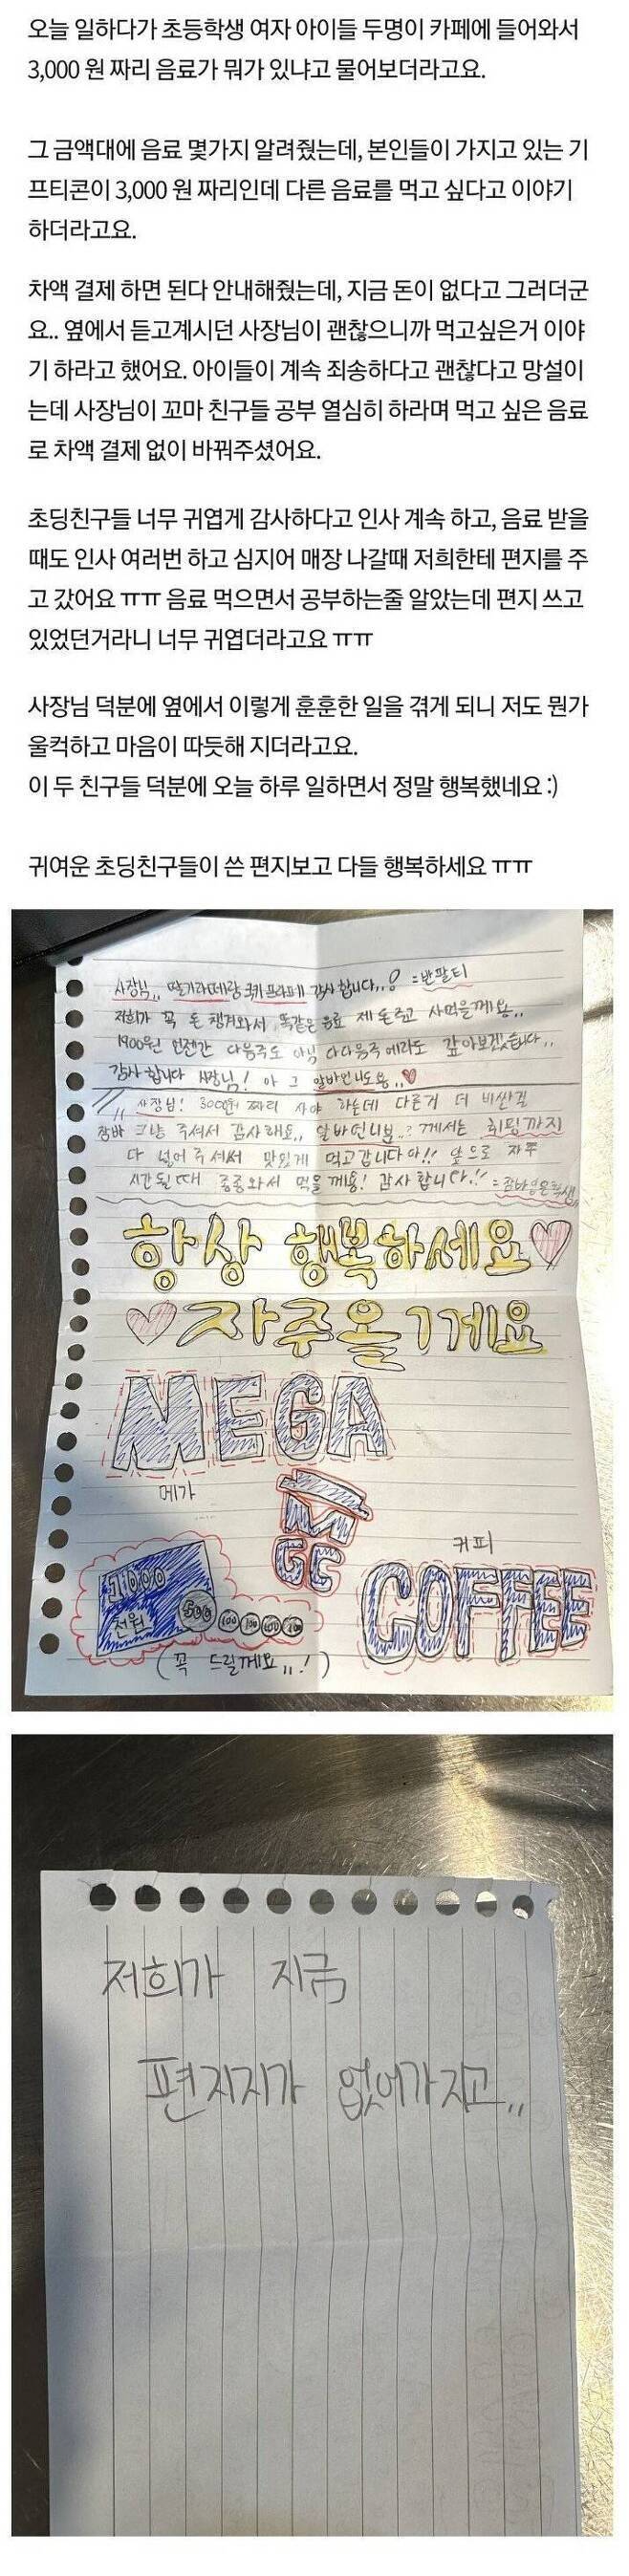 오늘 일하다가 초등학생 여자 아이들 두명이 카페에 들어와서
3,000 원 짜리 음료가 뭐가 있냐고 물어보더라고요.
그 금액대에 음료 몇가지 알려줬는데, 본인들이 가지고 있는 기
프티콘이 3,000 원 짜리인데 다른 음료를 먹고 싶다고 이야기
하더라고요.
차액 결제 하면 된다 안내해줬는데, 지금 돈이 없다고 그러더군
요.. 옆에서 듣고계시던 사장님이 괜찮으니까 먹고싶은거 이야
기 하라고 했어요. 아이들이 계속 죄송하다고 괜찮다고 망설이
는데 사장님이 꼬마 친구들 공부 열심히 하라며 먹고 싶은 음료
로 차액 결제 없이 바꿔주셨어요.
초딩친구들 너무 귀엽게 감사하다고 인사 계속 하고, 음료 받을
때도 인사 여러번 하고 심지어 매장 나갈때 저희한테 편지를 주
고 갔어요 ㅠㅠ 음료 먹으면서 공부하는줄 알았는데 편지 쓰고
있었던거라니 너무 귀엽더라고요 ㅠㅠ
사장님 덕분에 옆에서 이렇게 훈훈한 일을 겪게 되니 저도 뭔가
울컥하고 마음이 따듯해 지더라고요.
이 두 친구들 덕분에 오늘 하루 일하면서 정말 행복했네요 :)
귀여운 초딩친구들이 쓴 편지보고 다들 행복하세요 ㅠㅠ
사장님,, 딸기라떼랑 쿠키프라페 감사합니다..! =반팔티
저희가 꼭 돈 챙겨와서 똑같은 음료 제 돈주고 사먹을께요..
1900원 언젠간 다음주도 아님 다다음주에라도 갚아보겠습니다..
감사합니다 사장님! 아 그 알바언니도용..♥
사장님! 3000원 짜리 사야 하는데 다른거 더 비싼걸
잠바 그냥 주셔서 감사해요.. 알바언니분..? 께서는 휘핑까지
다 넣어주셔서 맛있게 먹고갑니다아!! 앞으로 자주
시간될때 종종와서 먹을께용! 감사합니다!! =잠바입은학생
항상 행복하세요♡
♡자주올게요
MEGA
메가
M
GC
커피
COFFEE
1000
천원
500 100 100 100 100
(꼭 드릴께요,,!)
저희가 지금
편지지가 없어가지고,,